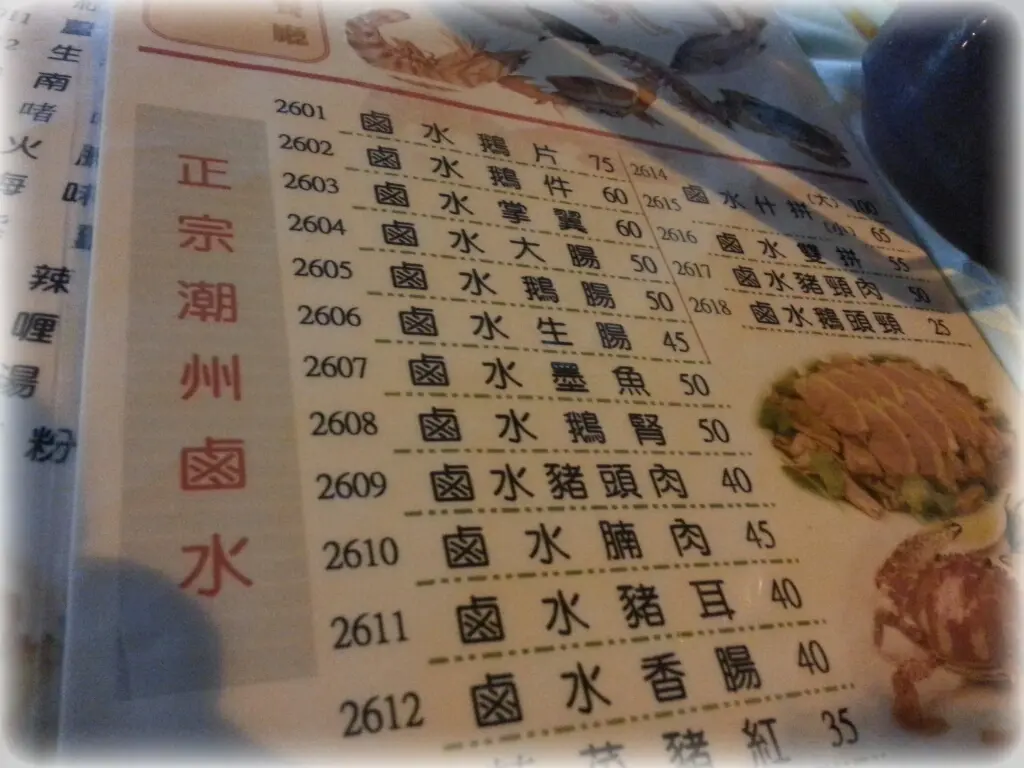 正宗潮州鹵水
2601 鹵水鵝片 75
2602 鹵水鵝件 60
2603 鹵水掌翼 60
2604 鹵水大腸 50
2605 鹵水鵝腸 50
2606 鹵水生腸 45
2607 鹵水墨魚 50
2608 鹵水鵝腎 50
2609 鹵水豬頭肉 40
2610 鹵水腩肉 45
2611 鹵水豬耳 40
2612 鹵水香腸 40
豬紅 35
2614 鹵水什拼(大) 100
2615 (小) 65
2616 鹵水雙拼 55
2617 鹵水豬頸肉 50
2618 鹵水鵝頭頸 25
生
南
啫
火
辣
喱
湯
粉